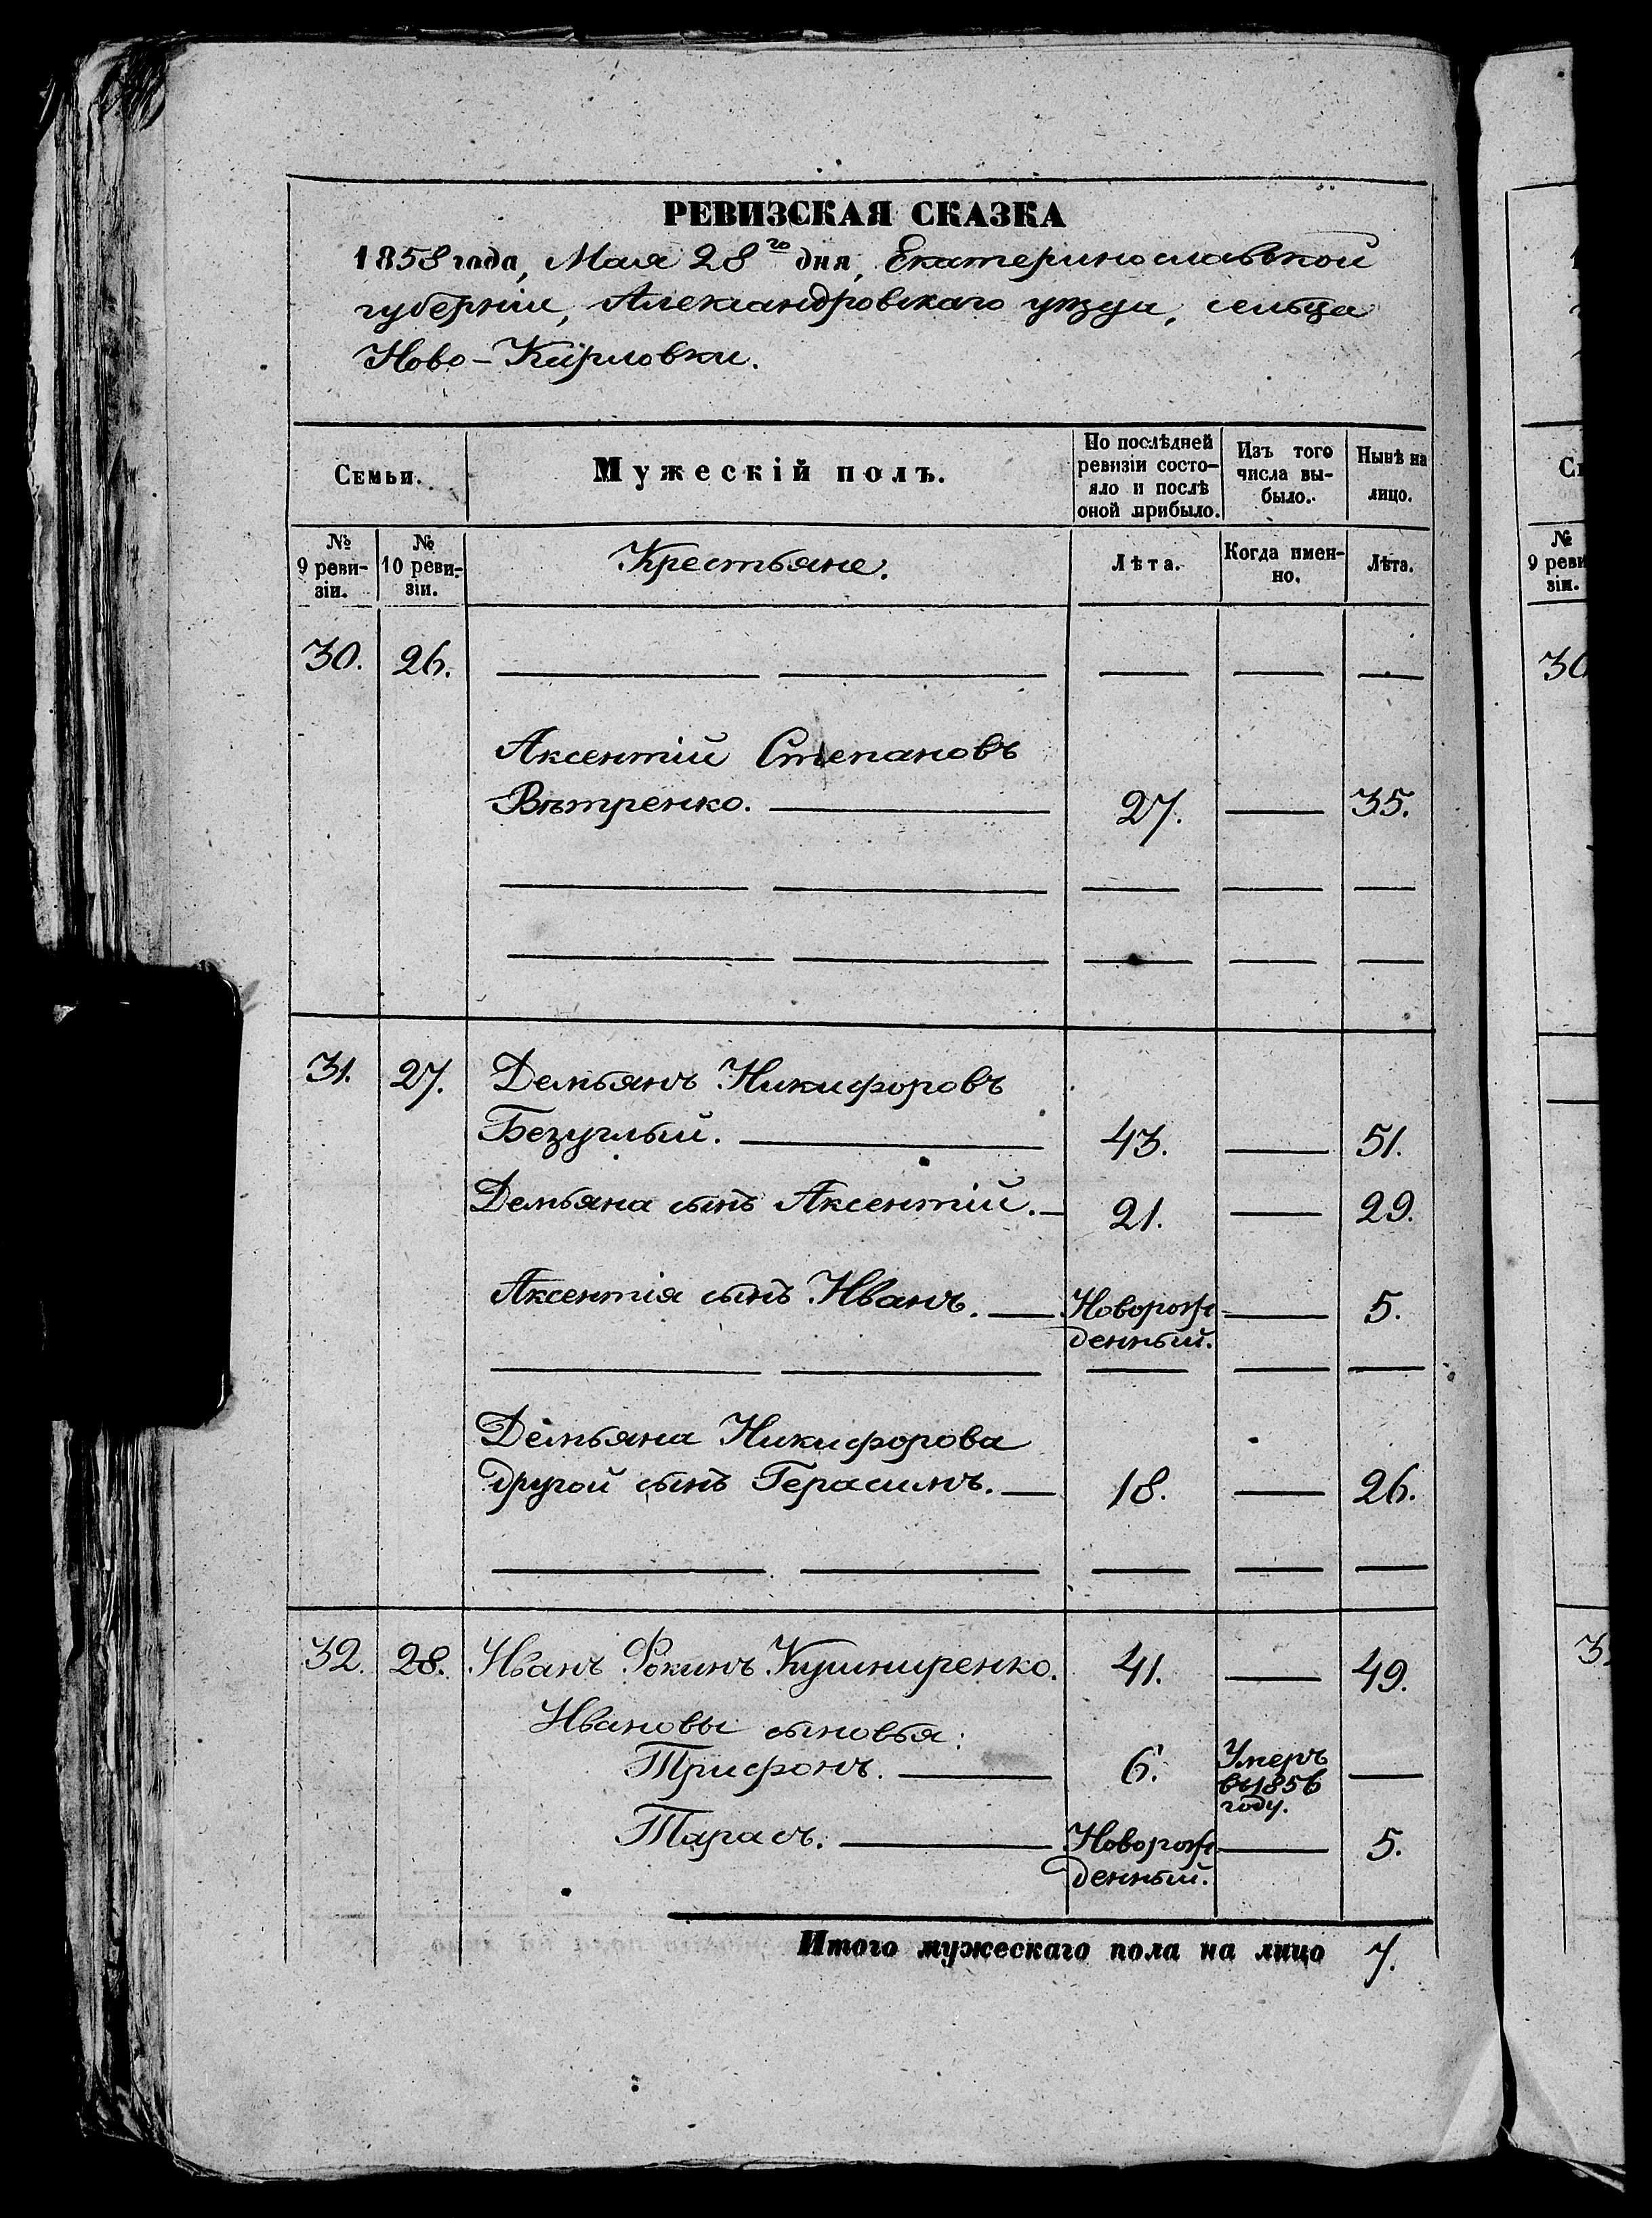 РЕВИЗСКАЯ СКАЗКА
1858 года, Мая 28го дня, Екатеринославской
губерніи, Александровскаго уѣзда, сельца
Ново-Карловки.
Семьи.
Мужескій полъ.
По послѣдней
ревизіи состо-
яло и послѣ
оной прибыло.
Изъ того
числа вы-
было.
Нынѣ на
лицо.
№
9 реви-
зіи.
№
10 реви-
зіи.
Крестьяне.
Лѣта.
Когда имен-
но.
Лѣта.
30. 26.
Аксентій Степановъ
Вѣтренко. 27. 35.
31. 27. Демьянъ Никифоровъ
Безуглый. 43. 51.
Демьяна сынъ Аксентій. 21. 29.
Аксентія сынъ Иванъ. Новорож 5.
денный.
Демьяна Никифорова
другой сынъ Герасимъ. 18. 26.
32. 28. Иванъ Фокинъ Кушниренко. 41. 49.
Ивановы сыновья:
Трифонъ. 6. Умеръ
въ 1856
году.
Тарасъ. Новорож 5.
денный.
Итого мужескаго пола на лицо 7.
№
9 реви
зіи.
30